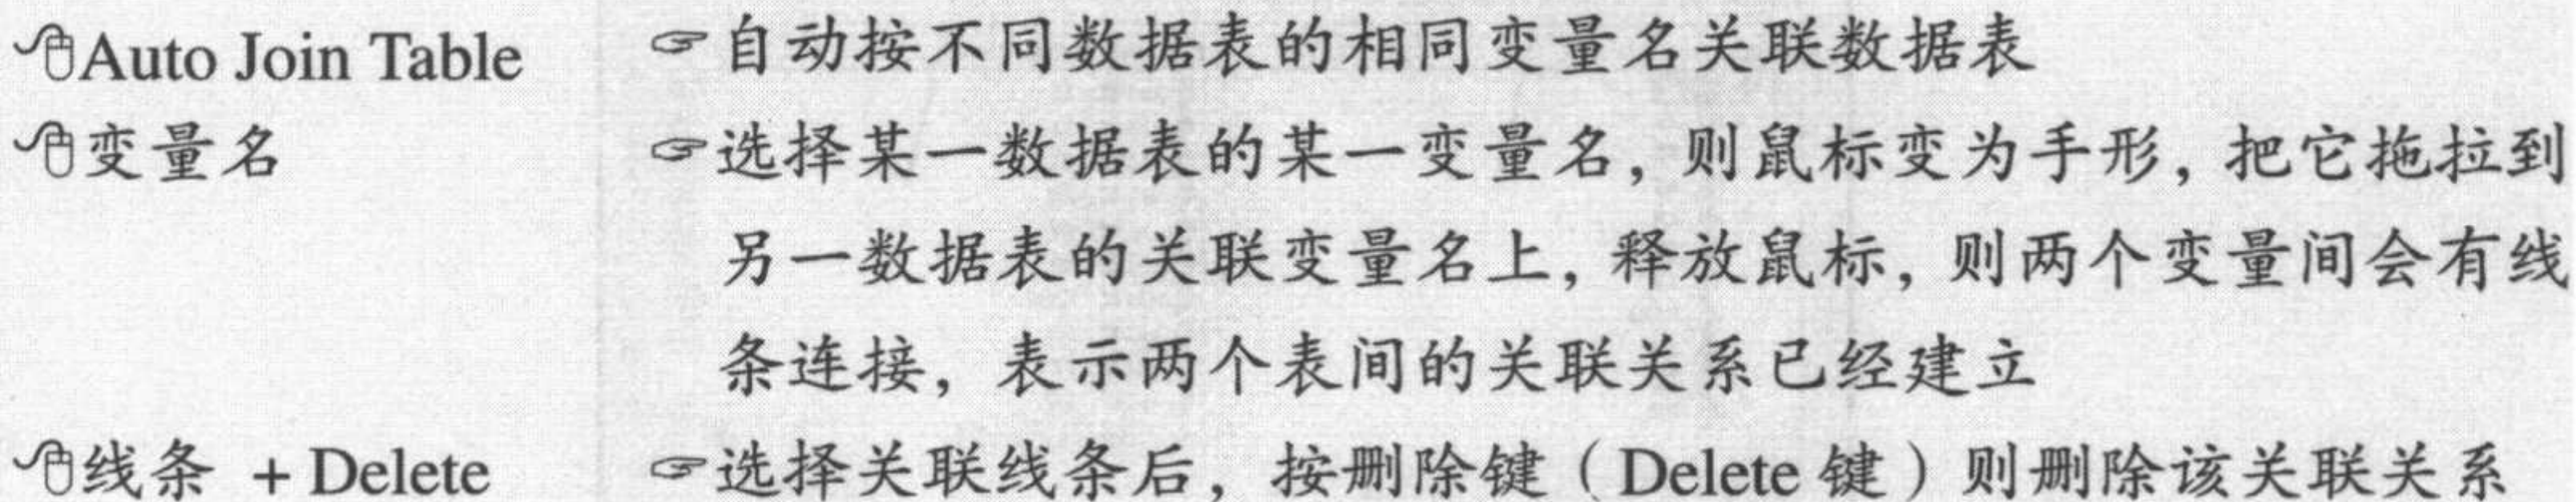 🖰Auto Join Table ☞自动按不同数据表的相同变量名关联数据表
🖰变量名 ☞选择某一数据表的某一变量名，则鼠标变为手形，把它拖拉到
另一数据表的关联变量名上，释放鼠标，则两个变量间会有线
条连接，表示两个表间的关联关系已经建立
🖰线条 + Delete ☞选择关联线条后，按删除键（Delete 键）则删除该关联关系